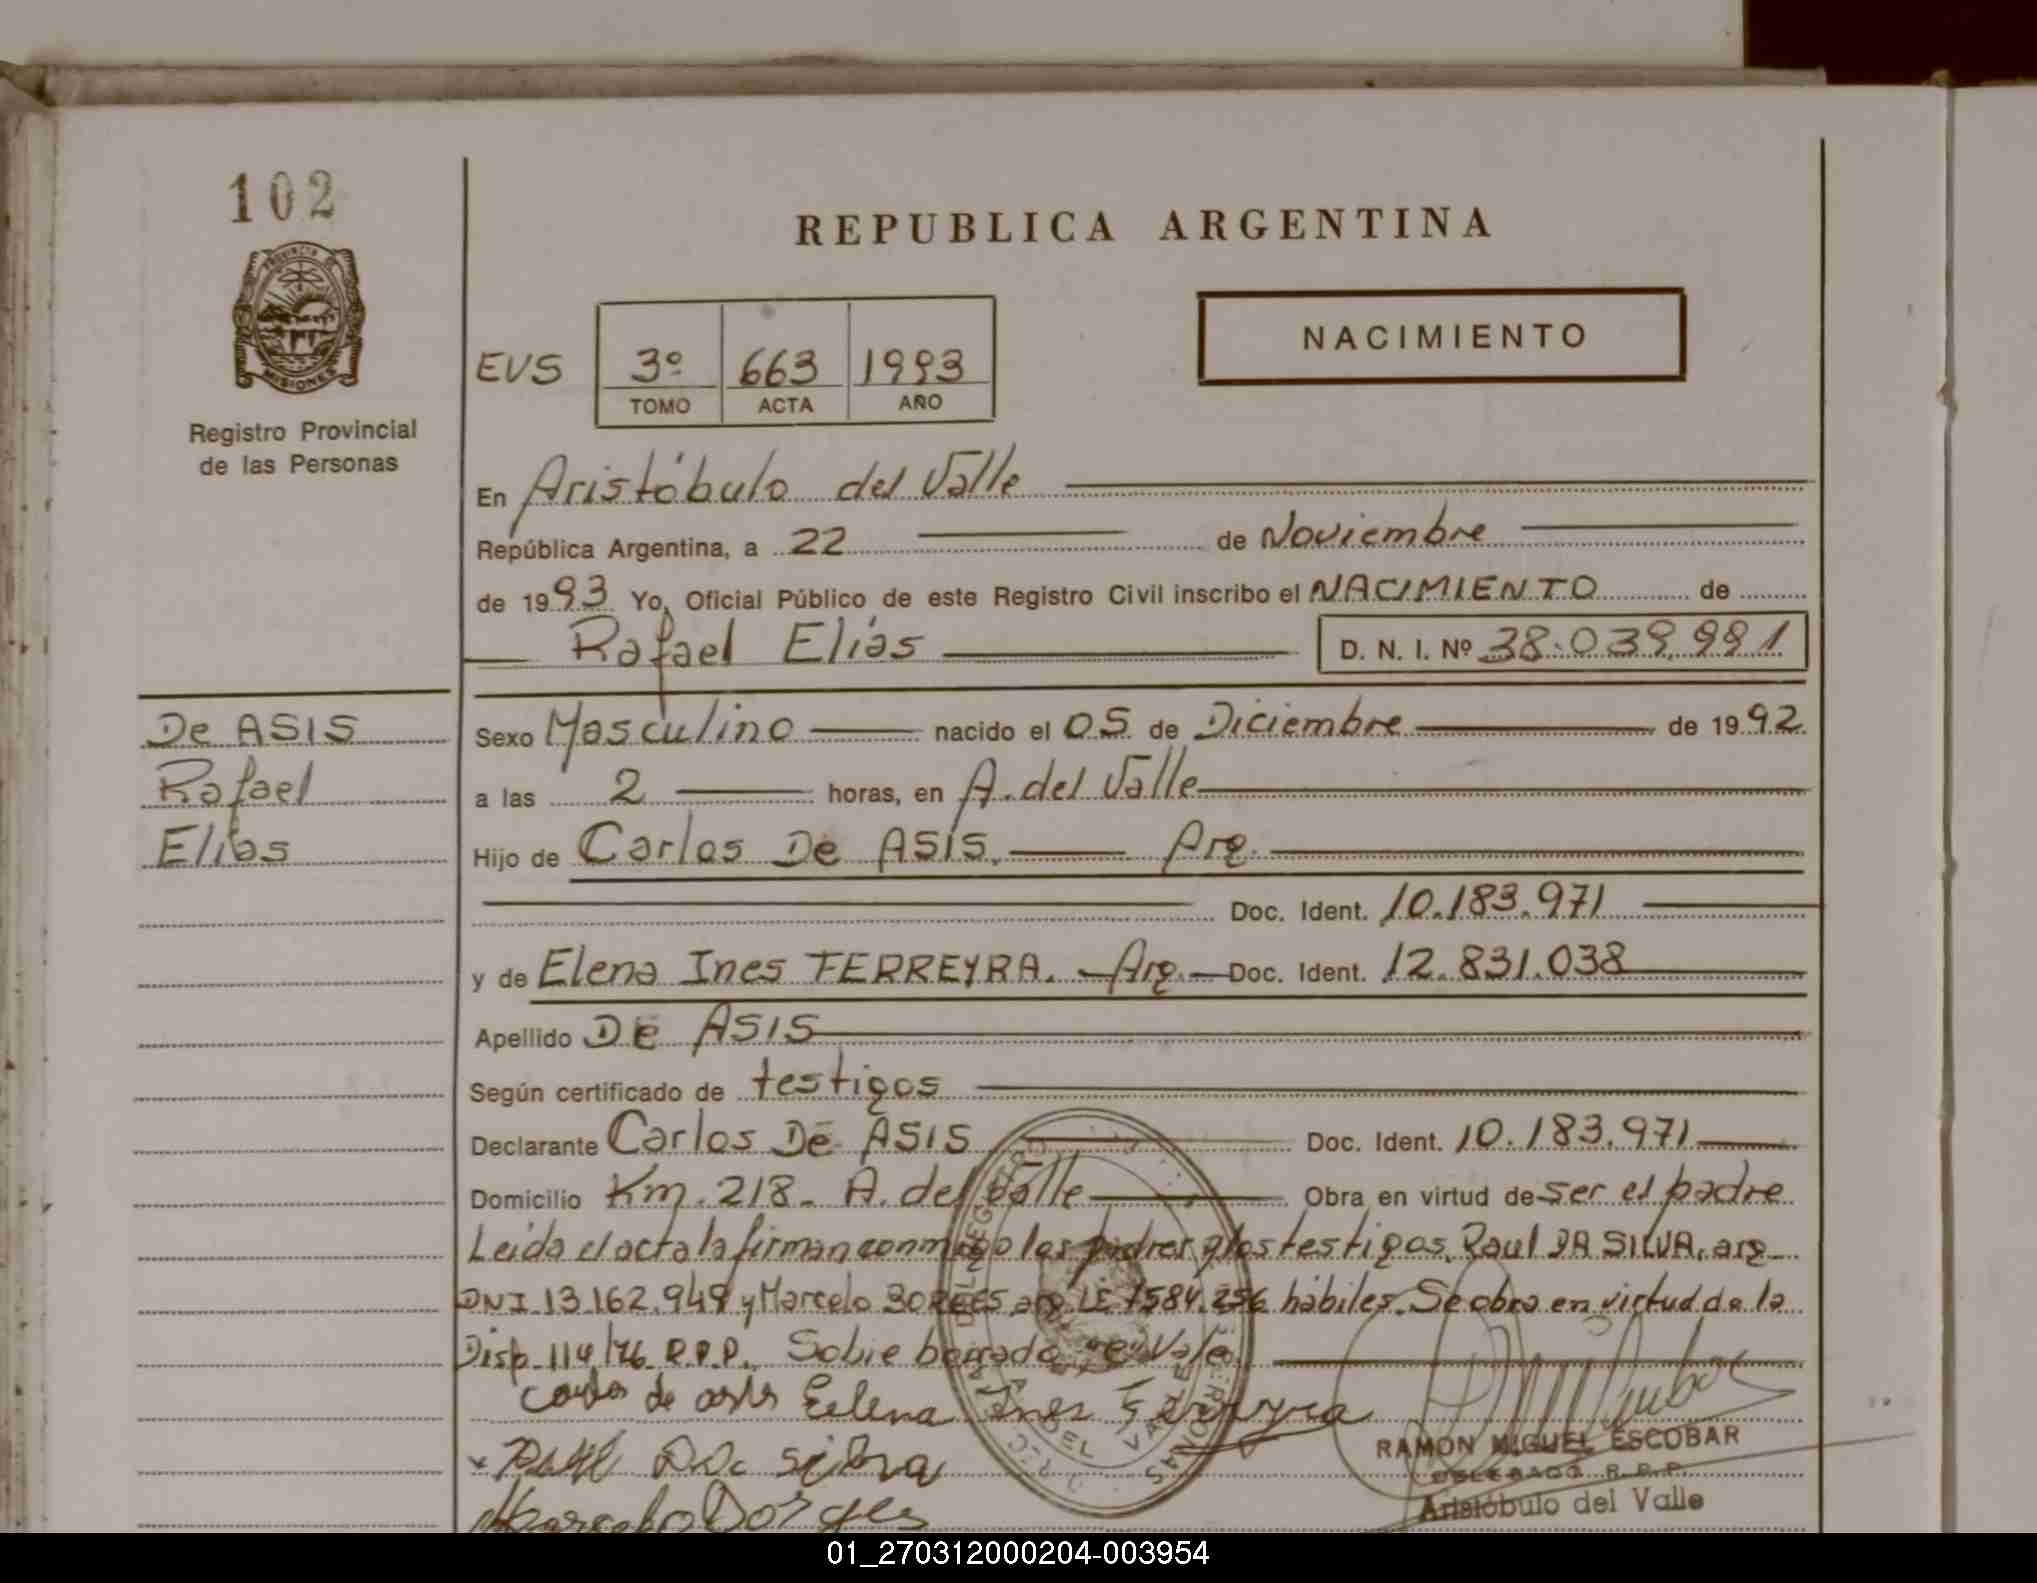 102
REPUBLICA ARGENTINA
PROVINCIA DE
MISIONES
Registro Provincial
de las Personas
EVS
3º 663 1993
TOMO ACTA AÑO
NACIMIENTO
En Aristóbulo del Valle
República Argentina, a 22 de Noviembre
de 1993 Yo, Oficial Público de este Registro Civil inscribo el NACIMIENTO de
Rafael Elías D. N. I. Nº 38.039.991
De ASIS
Rafael
Elías
Sexo Masculino nacido el 05 de Diciembre de 1992
a las 2 horas, en A. del Valle
Hijo de Carlos De ASIS. Arg.
Doc. Ident. 10.183.971
y de Elena Ines FERREYRA. Arg. Doc. Ident. 12.831.038
Apellido De ASIS
Según certificado de testigos
Declarante Carlos De ASIS Doc. Ident. 10.183.971
Domicilio Km. 218 - A. del Valle Obra en virtud de ser el padre
Leida el acta la firman conmigo los padres y los testigos, Raul DA SILVA, arg
DNI 13.162.949 y Marcelo BORGES arg LE 7584.256 hábiles. Se obra en virtud de la
Disp. 114/76 R.P.P. Sobre borrado "e" Vale
de asis Eelena Ines Ferreyra
Da silva
Marcelo Borges
RAMON MIGUEL ESCOBAR
DELEGADO R.P.P.
Aristóbulo del Valle
01_270312000204-003954